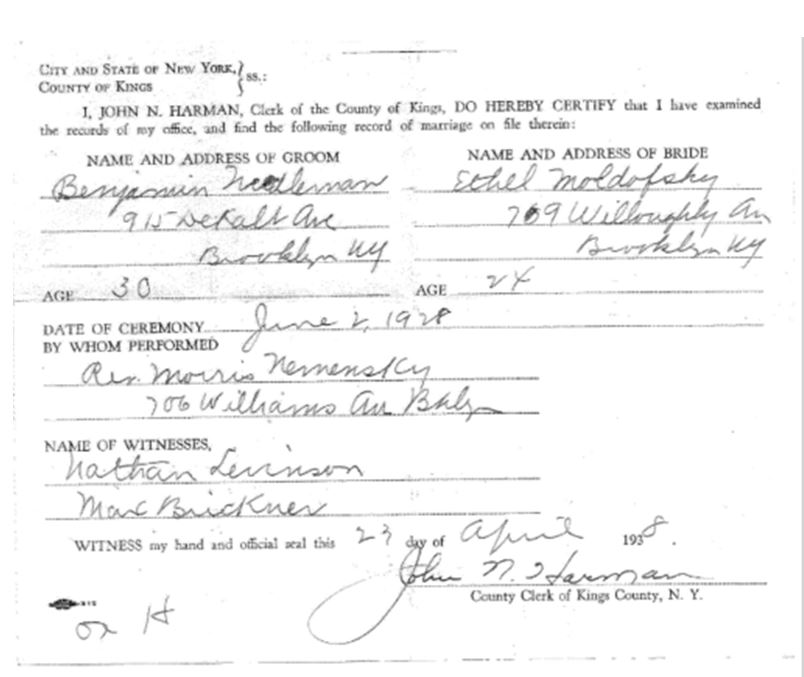 CITY AND STATE OF NEW YORK, } ss.:
COUNTY OF KINGS
I, JOHN N. HARMAN, Clerk of the County of Kings, DO HEREBY CERTIFY that I have examined
the records of my office, and find the following record of marriage on file therein:
NAME AND ADDRESS OF GROOM
Benjamin Needleman
915 DeKalb Ave
Brooklyn NY
AGE 30
NAME AND ADDRESS OF BRIDE
Ethel Moldofsky
769 Willoughby Av
Brooklyn NY
AGE 24
DATE OF CEREMONY June 2, 1928
BY WHOM PERFORMED
Rev. Morris Nemensky
706 Williams Av Bklyn
NAME OF WITNESSES,
Nathan Levinson
Max Brickner
WITNESS my hand and official seal this 23 day of April 1938.
John N. Harman
County Clerk of Kings County, N. Y.